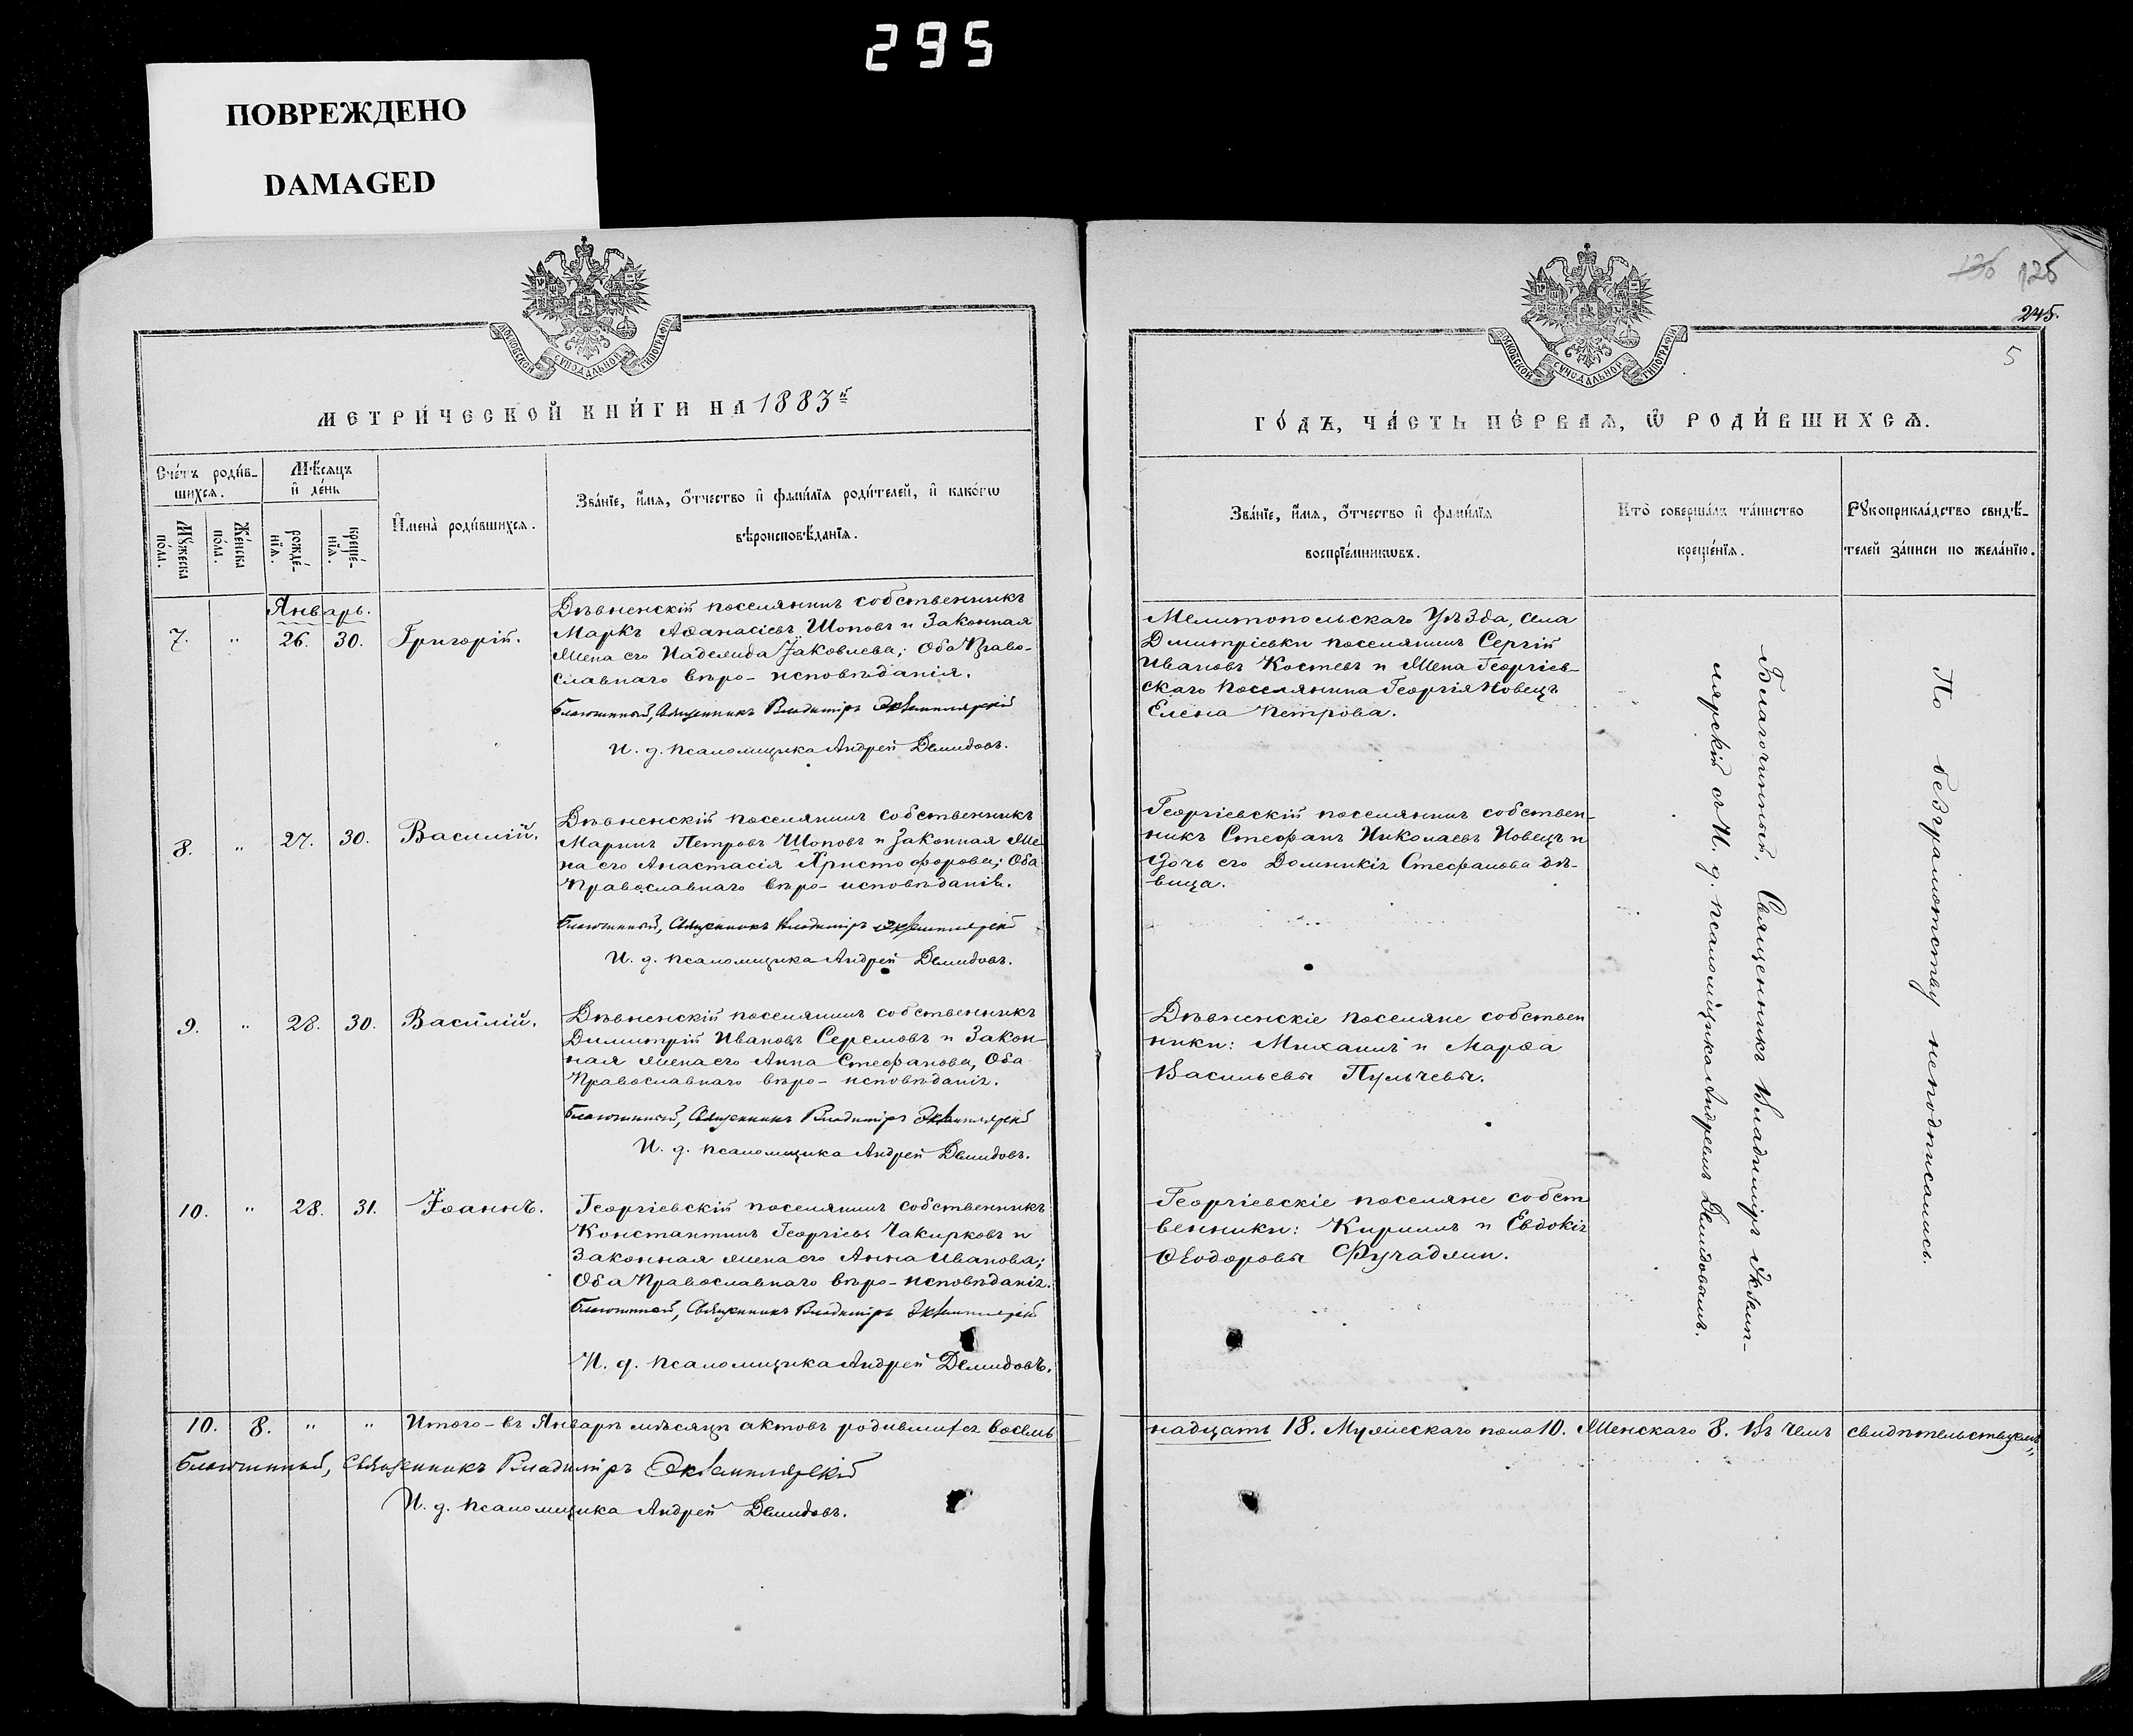 295
ПОВРЕЖДЕНО
DAMAGED
МОСКОВСКОЙ СѴНОДАЛЬНОЙ ТИПОГРАФІИ
МЕТРИ́ЧЕСКОЙ КНИ́ГИ НА 1883й
Сче́тъ роди́в-
шихся.
Мѣ́сяцъ
и҆ де́нь
Мꙋ́жеска
по́ла.
Же́нска
по́ла.
рожде́-
нїѧ.
креще́-
нїѧ.
И҆мена̀ роди́вшихсѧ.
Зва́нїе, и҆́мѧ, ѻ҆́тчество и҆ фами́лїѧ роди́телей, и҆ како́гѡ
вѣроисповѣ́данїѧ.
Январь.
7. " 26. 30. Григорій.
Дѣвненскій поселянинъ собственникъ
Маркъ Аѳанасіевъ Шоповъ и Законная
Жена его Надежда Іаковлева; Оба Право-
славнаго вѣро-исповѣданія.
Благочинный, Священникъ Владиміръ Экземплярскій
И. д. псаломщика Андрей Демидовъ.
8. " 27. 30. Василій.
Дѣвненскій поселянинъ собственникъ
Маринъ Петровъ Шоповъ и Законная Же
на его Анастасія Христофорова; Оба
Православнаго вѣро-исповѣданія.
Благочинный, Священникъ Владиміръ Экземплярскій
И. д. псаломщика Андрей Демидовъ.
9. " 28. 30. Василій.
Дѣвненскій поселянинъ собственникъ
Димитрій Ивановъ Серемовъ и Закон-
ная жена его Анна Стефанова, Оба
Православнаго вѣро-исповѣданія.
Благочинный, Священникъ Владиміръ Экземплярскій
И. д. псаломщика Андрей Демидовъ.
10. " 28. 31. Іоаннъ.
Георгіевскій поселянинъ собственникъ
Константинъ Георгіевъ Чакирковъ и
Законная жена его Анна Иванова;
Оба Православнаго вѣро-исповѣданія.
Благочинный, Священникъ Владиміръ Экземплярскій
И. д. псаломщика Андрей Демидовъ.
10. 8. " " Итого-въ Январѣ мѣсяцѣ актовъ родившихся восемь
Благочинный, Священникъ Владиміръ Экземплярскій
И. д. псаломщика Андрей Демидовъ.
126
245.
5
МОСКОВСКОЙ СѴНОДАЛЬНОЙ ТИПОГРАФІИ
ГО́ДЪ, ЧА́СТЬ ПЕ́РВАѦ, Ѡ҆ РОДИ́ВШИХСѦ.
Зва́нїе, и҆́мѧ, ѻ҆́тчество и҆ фами́лїѧ
воспрїе́мникѡвъ.
Кто̀ соверша́лъ та́инство
креще́нїѧ.
Рꙋкоприкла́дство свидѣ́-
телей за́писи по жела́нїю.
Мелитопольскаго Уѣзда, села
Дмитріевки поселянинъ Сергій
Ивановъ Костевъ и Жена Георгіев-
скаго поселянина Георгія Новецъ
Елена Петрова.
Георгіевскій поселянинъ собствен-
никъ Стефанъ Николаевъ Новецъ и
дочь его Домникія Стефанова дѣ-
вица.
Дѣвненскіе поселяне собствен
ники: Михаилъ и Марѳа
Васильевы Пульчевы.
Георгіевскіе поселяне собст
венники: Кириллъ и Евдокія
Ѳеодоровы Фучаджи.
Благочинный, Священникъ Владиміръ Экземп-
лярскій съ И. д. псаломщика Андреемъ Демидовымъ.
По безграмотству неподписались.
надцать 18. Мужескаго пола 10. Женскаго 8. Въ чемъ свидѣтельствуемъ,,